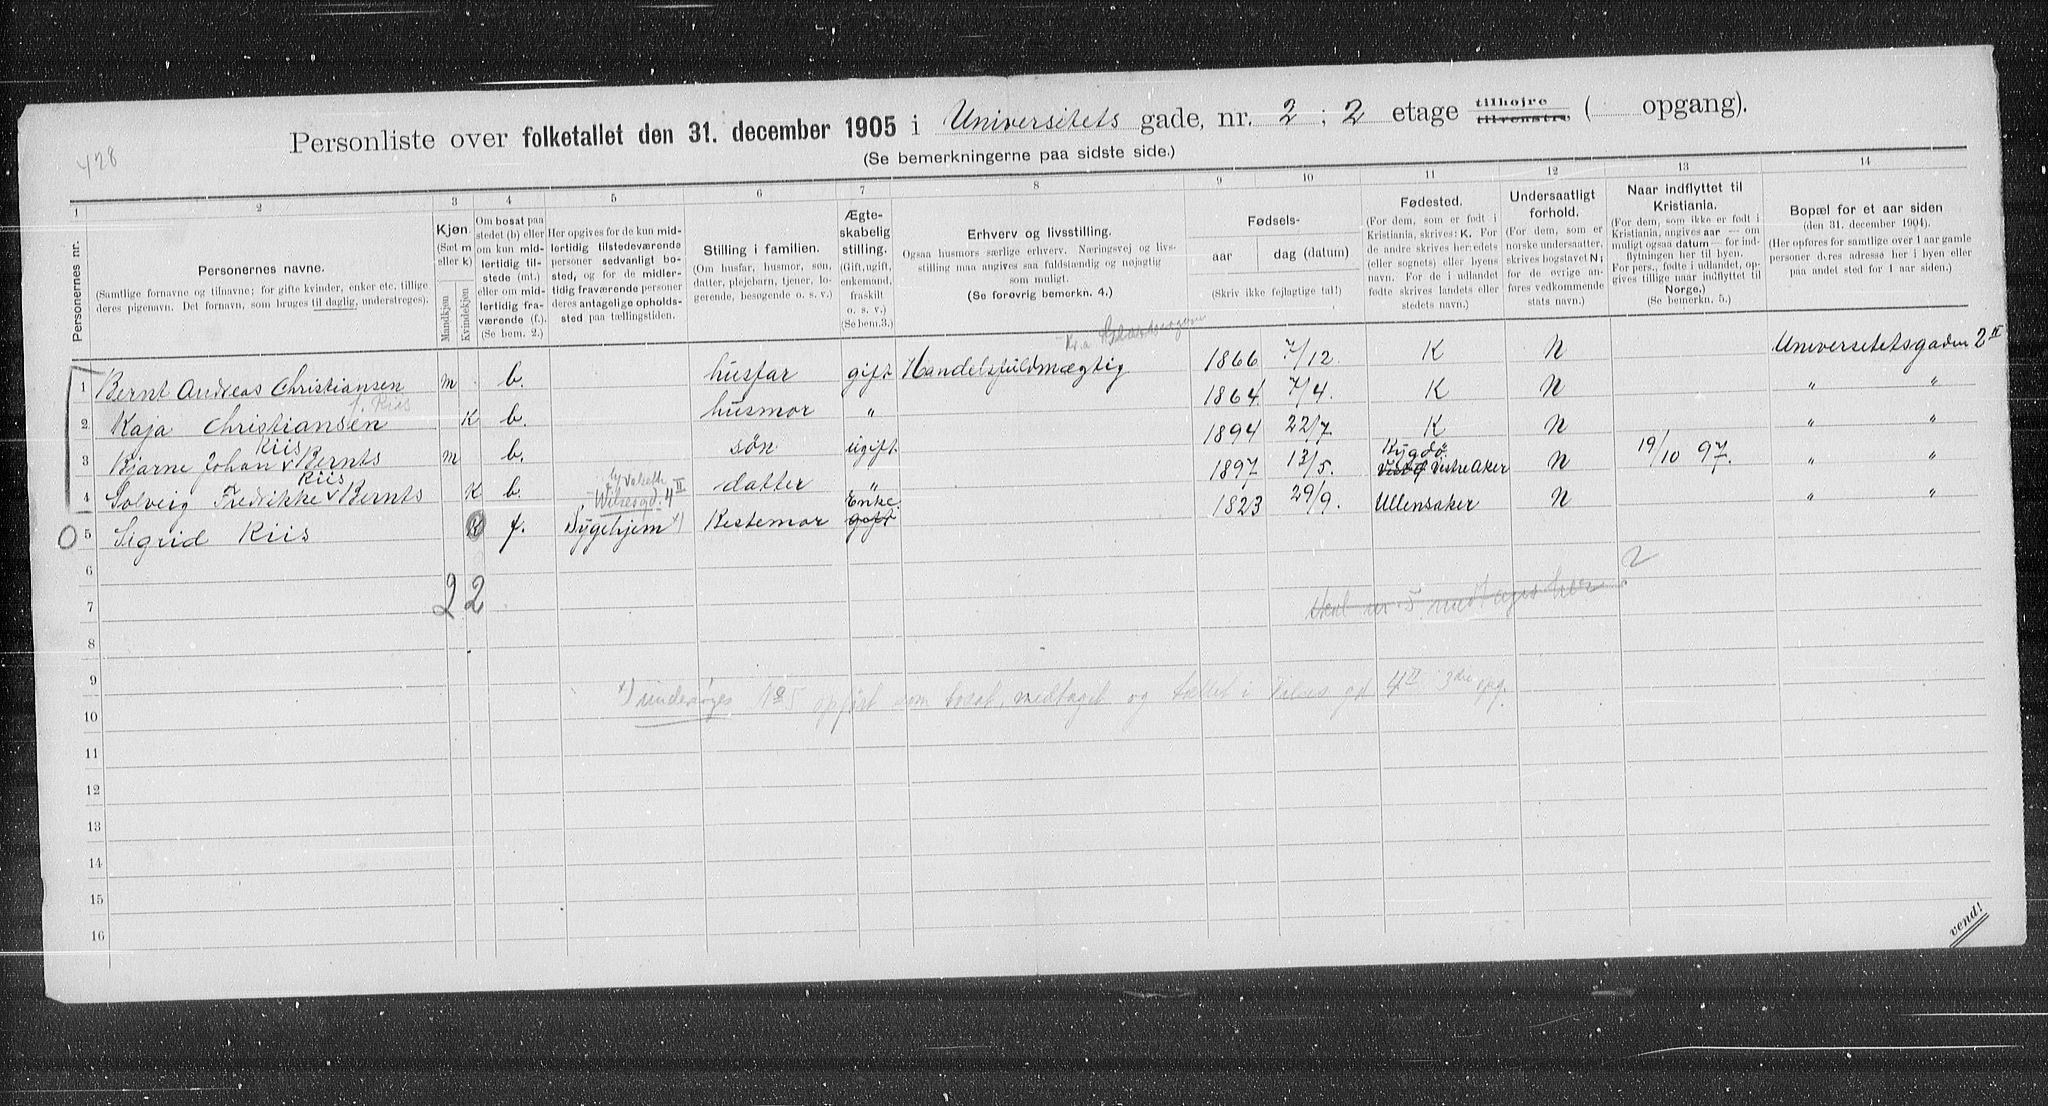 428
Personliste over folketallet den 31. december 1905 i Universitets gade, nr. 2 ; 2 etage tilhøjre tilvenstre ( opgang).
(Se bemerkningerne paa sidste side.)
1 2 3 4 5 6 7 8 9 10 11 12 13 14
Personernes nr.
Personernes navne.
(Samtlige fornavne og tilnavne; for gifte kvinder, enker etc. tillige deres pigenavn. Det fornavn, som bruges til daglig, understreges).
Kjøn.
(Sæt m eller k)
Mandkjøn
Kvindekjøn
Om bosat paa stedet (b) eller om kun midlertidig tilstede (mt.) eller om midlertidig fraværende (f.). (Se bem. 2.)
Her opgives for de kun midlertidig tilstedeværende personer sedvanligt bosted, og for de midlertidig fraværende personer deres antagelige opholdssted paa tællingstiden.
Stilling i familien.
(Om husfar, husmor, søn, datter, plejebarn, tjener, logerende, besøgende o. s. v.)
Ægteskabelig stilling.
(Gift, ugift, enkemand, fraskilt o. s. v.)
(Se bem.3.)
Erhverv og livsstilling.
Ogsaa husmors særlige erhverv. Næringsvej og livsstilling maa angives saa fuldstændig og nøjagtig som muligt.
(Se forøvrig bemerkn. 4.)
Fødsels-
aar
dag (datum)
(Skriv ikke fejlagtige tal!)
Fødested.
(For dem, som er født i Kristiania, skrives: K. For de andre skrives herredets (eller sognets) eller byens navn. For de i udlandet fødte skrives landets eller stedets navn.)
Undersaatligt forhold.
(For dem, som er norske undersaatter, skrives bogstavet N; for de øvrige anføres vedkommende stats navn.)
Naar indflyttet til Kristiania.
(For dem, som ikke er født i Kristiania, angives aar — om muligt ogsaa datum — for indflytningen her til byen. For pers., fødte i udlandet, opgives tillige naar indflyttet til Norge.)
(Se bemerkn. 5.)
Bopæl for et aar siden
(den 31. december 1904).
(Her opføres for samtlige over 1 aar gamle personer deres adresse her i byen eller paa andet sted for 1 aar siden.)
1 Bernt Andreas Christiansen m b. husfar gift Handelsfuldmægtig 1866 7/12. K N Universitetsgaden 2 II
f. Riis
2 Kaja Christiansen K b. husmor " 1864 7/4. K N " "
Riis
3 Bjarne Johan v Bernts m b. søn ugift. 1894 22/7 K N " "
Riis
Bygdø
4 Solveig Fredrikke v Bernts K b. datter " 1897 13/5. Vestre Aker N 19/10 97. " "
Enke.
5 Sigrid Riis f. Sygehjem x) Bestemor gift 1823 29/9. Ullensaker N " "
6
2 2
7 skal nr 5 medtages her ?
8
9
x) undersøges No 5 opført som bosat, medtaget og tællet i gd 4 II 3die opg.
10
11
12
13
14
15
16
vend!